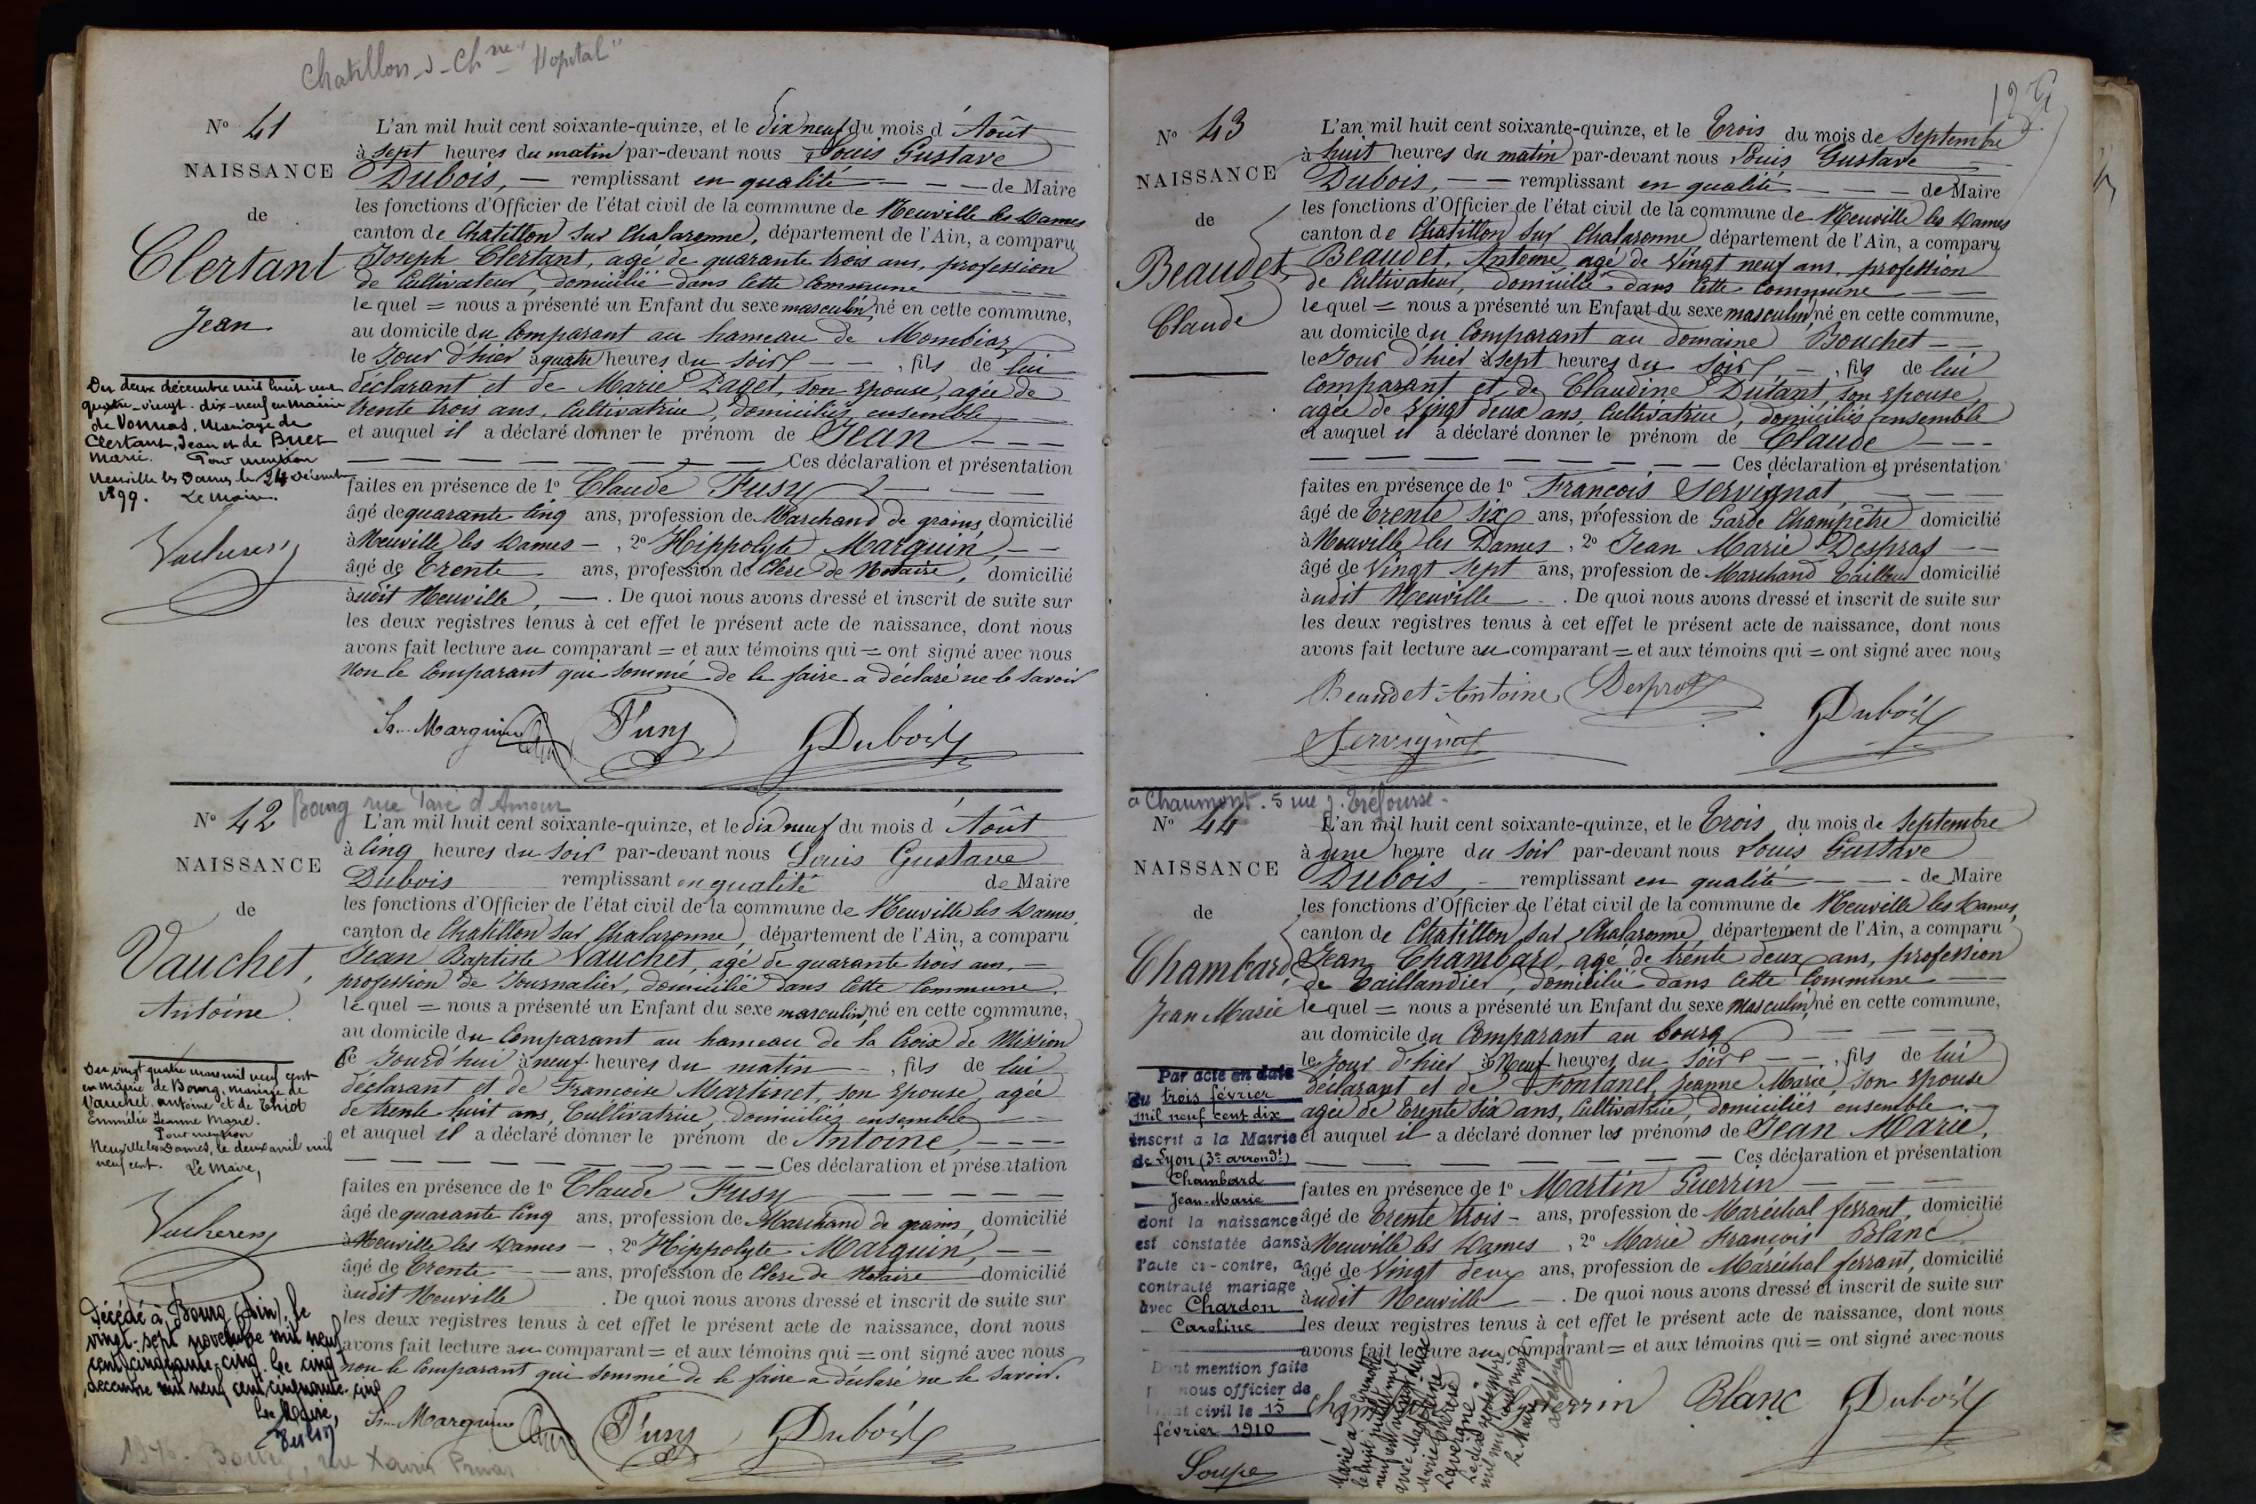 Chatillon-s-Chne "Hopital"
No 41
NAISSANCE
de
Clertant
Jean
Du deux décembre mil huit cent
quatre-vingt-dix-neuf en mairie
de Vonnas, mariage de
Clertant, Jean et de Buet
Marie. Pour mention
Neuville les Dames le 24 Décembre
1899. Le Maire.
L'an mil huit cent soixante-quinze, et le Dix neuf du mois d'Août
à sept heures du matin par-devant nous Louis Gustave
Dubois, — remplissant en qualité — — — de Maire
les fonctions d'Officier de l'état civil de la commune de Neuville les Dames
canton de Chatillon sur Chalaronne, département de l'Ain, a comparu
Joseph Clertant, agé de quarante trois ans, profession
de Cultivateur, domicilié dans cette Commune
le quel = nous a présenté un Enfant du sexe masculin, né en cette commune,
au domicile du Comparant au hameau de
le Jour d'hier à quatre heures du soir — — , fils de lui
déclarant et de Marie Paget, son épouse, agée de
trente trois ans, Cultivatrice, domiciliés ensemble
et auquel il a déclaré donner le prénom de Jean — — —
— — — — — — — Ces déclaration et présentation
faites en présence de 1o Claude Fusy — — —
âgé de quarante cinq ans, profession de Marchand de grains, domicilié
à Neuville les Dames — , 2o Hippolyte Marguin, — —
âgé de Trente ans, profession de Clerc de Notaire, domicilié
audit Neuville, — . De quoi nous avons dressé et inscrit de suite sur
les deux registres tenus à cet effet le présent acte de naissance, dont nous
avons fait lecture au comparant = et aux témoins qui = ont signé avec nous
non le Comparant qui sommé de le faire a déclaré ne le savoir
Marguin Fusy GDubois
No 42
Bourg rue d'Amour
NAISSANCE
de
Vauchet,
Antoine.
Du vingt quatre mars mil neuf cent
en mairie de Bourg, mariage de
Vauchet, antoine et de Thiot
Emmélie Jeanne Marie.
Pour mention
Neuville les Dames, le deux avril mil
neuf cent. Le Maire,
Décédé à Bourg (Ain), le
vingt-sept novembre mil neuf
cent cinquante-cinq. Le cinq
décembre mil neuf cent cinquante-cinq
Le Maire,
L'an mil huit cent soixante-quinze, et le dix neuf du mois d'Août
à cinq heures du soir par-devant nous Louis Gustave
Dubois remplissant en qualité de Maire
les fonctions d'Officier de l'état civil de la commune de Neuville les Dames,
canton de Chatillon sur Chalaronne, département de l'Ain, a comparu
Jean Baptiste Vauchet, agé de quarante trois ans, —
profession de Journalier, domicilié dans cette Commune.
le quel = nous a présenté un Enfant du sexe masculin, né en cette commune,
au domicile du Comparant au hameau de la Croix de Mission
ce jourd'hui à neuf heures du matin — , fils de lui
déclarant et de Francoise Martinet, son épouse, agée
de trente huit ans, Cultivatrice, domiciliés ensemble
et auquel il a déclaré donner le prénom de Antoine, — — —
— — — — — — — Ces déclaration et présentation
faites en présence de 1o Claude Fusy — — — —
âgé de quarante cinq ans, profession de Marchand de grains, domicilié
à Neuville les Dames — , 2o Hippolyte Marguin, — —
âgé de Trente — — ans, profession de Clerc de Notaire domicilié
audit Neuville . De quoi nous avons dressé et inscrit de suite sur
les deux registres tenus à cet effet le présent acte de naissance, dont nous
avons fait lecture au comparant = et aux témoins qui = ont signé avec nous
non le Comparant qui sommé de le faire a déclaré ne le savoir.
Marguin Fusy GDubois
rue Xavier Privas
No 43
NAISSANCE
de
Beaudet,
Claude
L'an mil huit cent soixante-quinze, et le Trois du mois de Septembre
à huit heures du matin par-devant nous Louis Gustave
Dubois, — — remplissant en qualité — — — de Maire
les fonctions d'Officier de l'état civil de la commune de Neuville les Dames
canton de Chatillon sur Chalaronne, département de l'Ain, a comparu
Beaudet, Antoine, agé de Vingt neuf ans, profession
de Cultivateur, domicilié dans cette Commune — —
le quel = nous a présenté un Enfant du sexe masculin, né en cette commune,
au domicile du Comparant au domaine Bouchet — —
le Jour d'hier à sept heures du soir, — , fils de lui
Comparant et de Claudine Dutant, son épouse,
agée de Vingt deux ans, Cultivatrice, domiciliés ensemble
et auquel il a déclaré donner le prénom de Claude — — —
— — — — — — — — Ces déclaration et présentation
faites en présence de 1o Francois Servignat, — — —
âgé de Trente Six ans, profession de Garde Champêtre domicilié
à Neuville les Dames, 2o Jean Marie Despras — —
âgé de Vingt Sept ans, profession de Marchand Tailleur domicilié
audit Neuville . De quoi nous avons dressé et inscrit de suite sur
les deux registres tenus à cet effet le présent acte de naissance, dont nous
avons fait lecture au comparant = et aux témoins qui = ont signé avec nous
Beaudet Antoine Despras GDubois
Servignat
a Chaumont. 5 rue J. Tréfousse
No 44
NAISSANCE
de
Chambard,
Jean Marie
Par acte en date
du trois février
mil neuf cent dix
inscrit a la Mairie
de Lyon (3e arrondt)
Chambard
Jean-Marie
dont la naissance
est constatée dans
l'acte ci-contre, a
contracté mariage
avec Chardon
Caroline
Dont mention faite
nous officier de
civil le 15
février 1910
Soupe
L'an mil huit cent soixante-quinze, et le Trois du mois de Septembre
à une heure du soir par-devant nous Louis Gustave
Dubois, — remplissant en qualité — — - de Maire
les fonctions d'Officier de l'état civil de la commune de Neuville les Dames,
canton de Chatillon sur Chalaronne, département de l'Ain, a comparu
Jean Chambard, agé de trente deux ans, profession
de Taillandier, domicilié dans cette Commune —
le quel = nous a présenté un Enfant du sexe masculin, né en cette commune,
au domicile du Comparant au bourg — — —
le Jour d'hier à Neuf heures du soir — — , fils de lui
déclarant et de Fontanel, Jeanne Marie, son épouse
agée de Trente six ans, Cultivatrice, domiciliés ensemble —
et auquel il a déclaré donner les prénoms de Jean Marie,
— — — — — — — — Ces déclaration et présentation
faites en présence de 1o Martin Guerrin — — —
âgé de Trente trois — ans, profession de Maréchal ferrant, domicilié
à Neuville les Dames , 2o Marie François Blanc
âgé de Vingt deux ans, profession de Maréchal ferrant, domicilié
audit Neuville — . De quoi nous avons dressé et inscrit de suite sur
les deux registres tenus à cet effet le présent acte de naissance, dont nous
avons fait lecture au comparant = et aux témoins qui = ont signé avec nous
Guerrin Blanc GDubois
Marié à Grenoble
le huit juillet mil